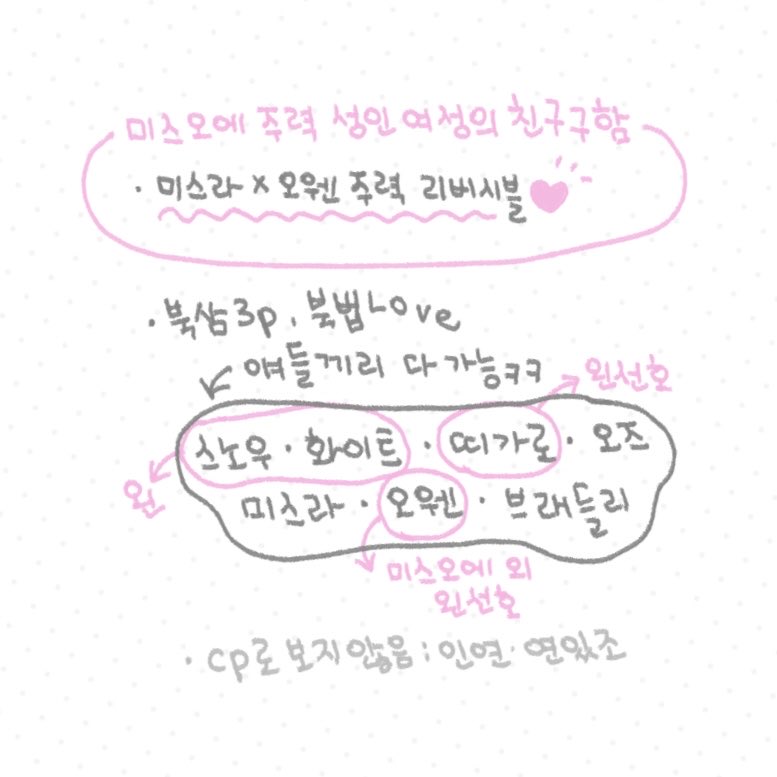 미스오에 주력 성인여성의 친구구함
· 미스라 x 오웬 주력 리버시블
· 북삼3p, 북법Love
얘들끼리 다 가능ㅋㅋ
왼선호
스노우 · 화이트 · 띠가로 · 오즈
왼
미스라 · 오웬 · 브래들리
미스오에 외
왼선호
· cp로 보지않음 ; 인연·연있조